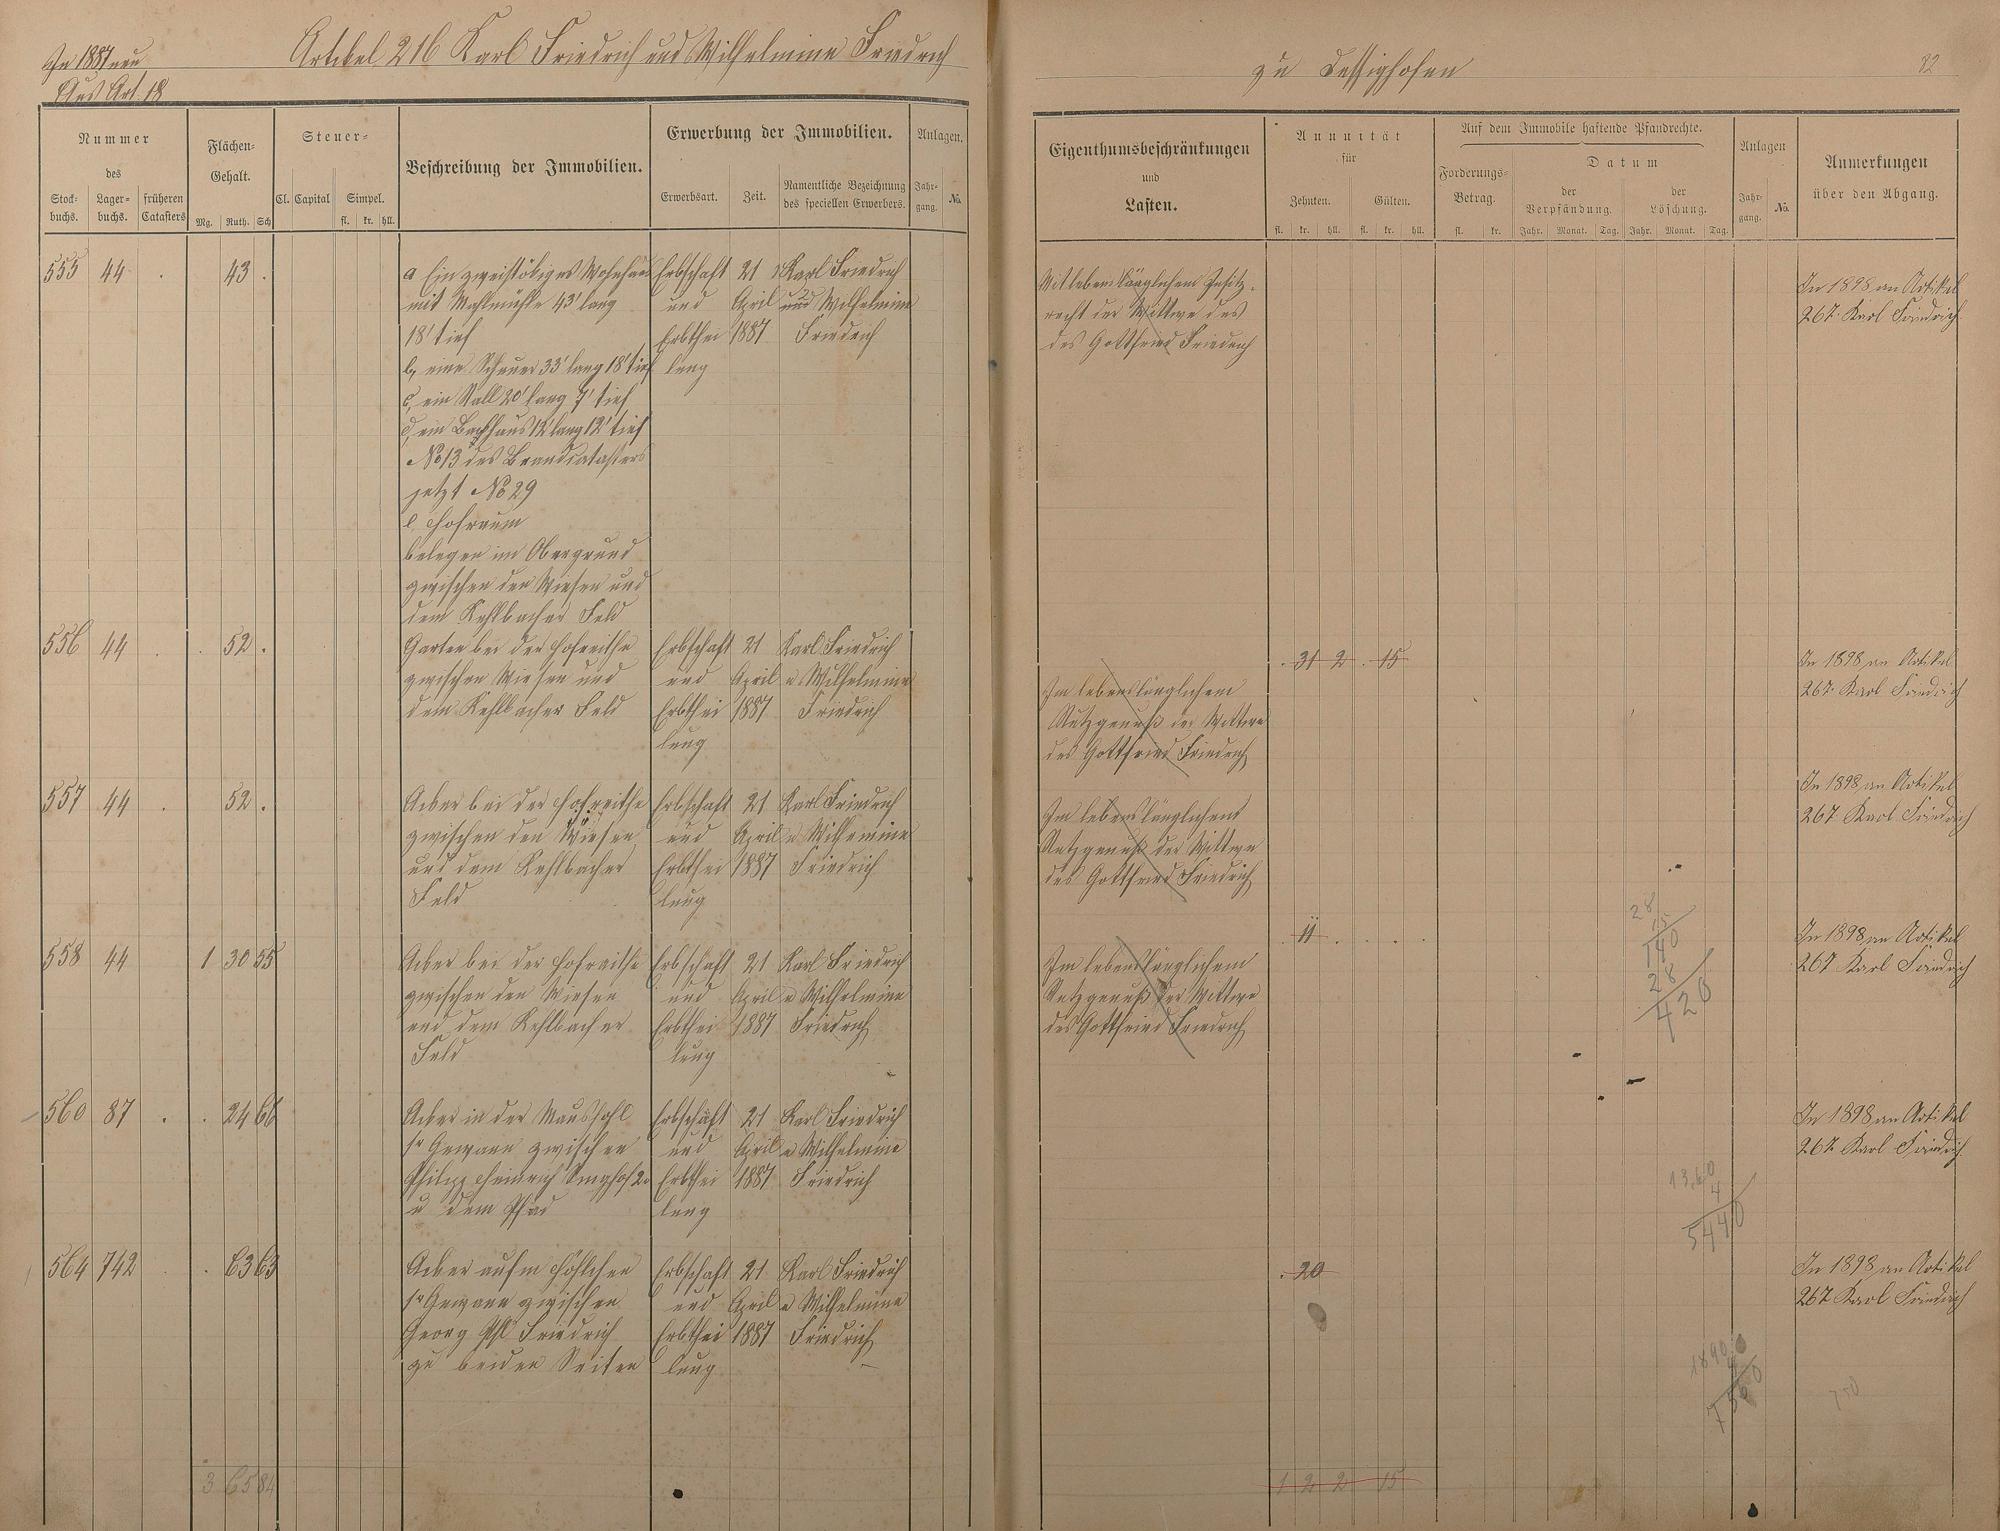 In 1887 neu
Aus Art. 18
Artikel 216 Karl Friedrich und Wilhelmine Friedrich
zu Dessighofen
82
Nummer
des
Stock-
buchs.
Lager-
buchs.
früheren
Catasters
Flächen-
Gehalt.
Mg. Ruth. Sch
Steuer-
Cl. Capital Simpel.
fl. kr. hll.
Beschreibung der Immobilien.
Erwerbung der Immobilien.
Erwerbsart. Zeit.
Namentliche Bezeichnung
des speciellen Erwerbers.
Anlagen.
Jahr-
gang.
No.
Eigenthumsbeschränkungen
und
Lasten.
Annuität
für
Zehnten. Gülten.
fl. kr. hll. fl. kr. hll.
Auf dem Immobile haftende Pfandrechte.
Forderungs-
Betrag.
fl. kr.
Datum
der
Verpfändung.
der
Löschung.
Jahr. Monat. Tag. Jahr. Monat. Tag.
Anlagen
Jahr-
gang.
No.
Anmerkungen
über den Abgang.
555 44 . 43 .
a Ein zweistökiges Wohnhaus
mit Mahlmühle 43' lang
18' tief
b, eine Scheuer 33' lang 18' tief
c, ein Stall 20' lang 7' tief
d, ein Backhaus 12' lang 12' tief
No 13 des Brandcatasters
jetzt No 29
e Hofraum
belegen im Obergrund
zwischen den Wiesen und
dem Kehlbacher Feld
Erbschaft
und
Erbthei
lung
21
April
1887
Karl Friedrich
und Wilhelmine
Friedrich
Mit lebenslänglichem Insitz-
recht der Wittwe des
des Gottfried Friedrich
In 1898 an Artikel
267 Karl Friedrich
556 44 . . 52 .
Garten bei der Hofreithe
zwischen Wiesen und
dem Kehlbacher Feld
Erbschaft
und
Erbthei
lung
21
April
1887
Karl Friedrich
u Wilhelmine
Friedrich
. 31 2 . 15
Im lebenslänglichem
Nutzgenuß der Wittwe
des Gottfried Friedrich
In 1898 an Artikel
267 Karl Friedrich
557 44 . 52 .
Acker bei der Hofreithe
zwischen den Wiesen
und dem Kehlbacher
Feld
Erbschaft
und
Erbthei
lung
21
April
1887
Karl Friedrich
u Wilhemine
Friedrich
Im lebenslänglichem
Nutzgenuß der Wittwe
des Gottfried Friedrich
In 1898 an Artikel
267 Karl Friedrich
558 44 1 30 55
Acker bei der Hofraithe
zwischen den Wiesen
und dem Kehlbacher
Feld
Erbschaft
und
Erbthei
lung
21
April
1887
Karl Friedrich
u Wilhelmine
Friedrich
. 11 . . . .
Im lebenslänglichem
Nutzgenuß der Wittwe
des Gottfried Friedrich
28
15
140
28
420
In 1898 an Artikel
267 Karl Friedrich
560 87 . . 24 66
Acker in der Maushohl
1r Gewann zwischen
Philipp Heinrich Singhof 2r
u dem Pfad
Erbschaft
und
Erbthei
lung
21
April
1887
Karl Friedrich
u Wilhelmine
Friedrich
In 1898 an Artikel
267 Karl Friedrich
13,60
4
5440
564 742 . . 63 63
Acker aufm Höhlchen
1r Gewann zwischen
Georg Phl Friedrich
zu beiden Seiten
Erbschaft
und
Erbthei
lung
21
April
1887
Karl Friedrich
u Wilhelmine
Friedrich
. 20
In 1898 an Artikel
267 Karl Friedrich
1890
4
7560
3 65 84
1 2 2 15